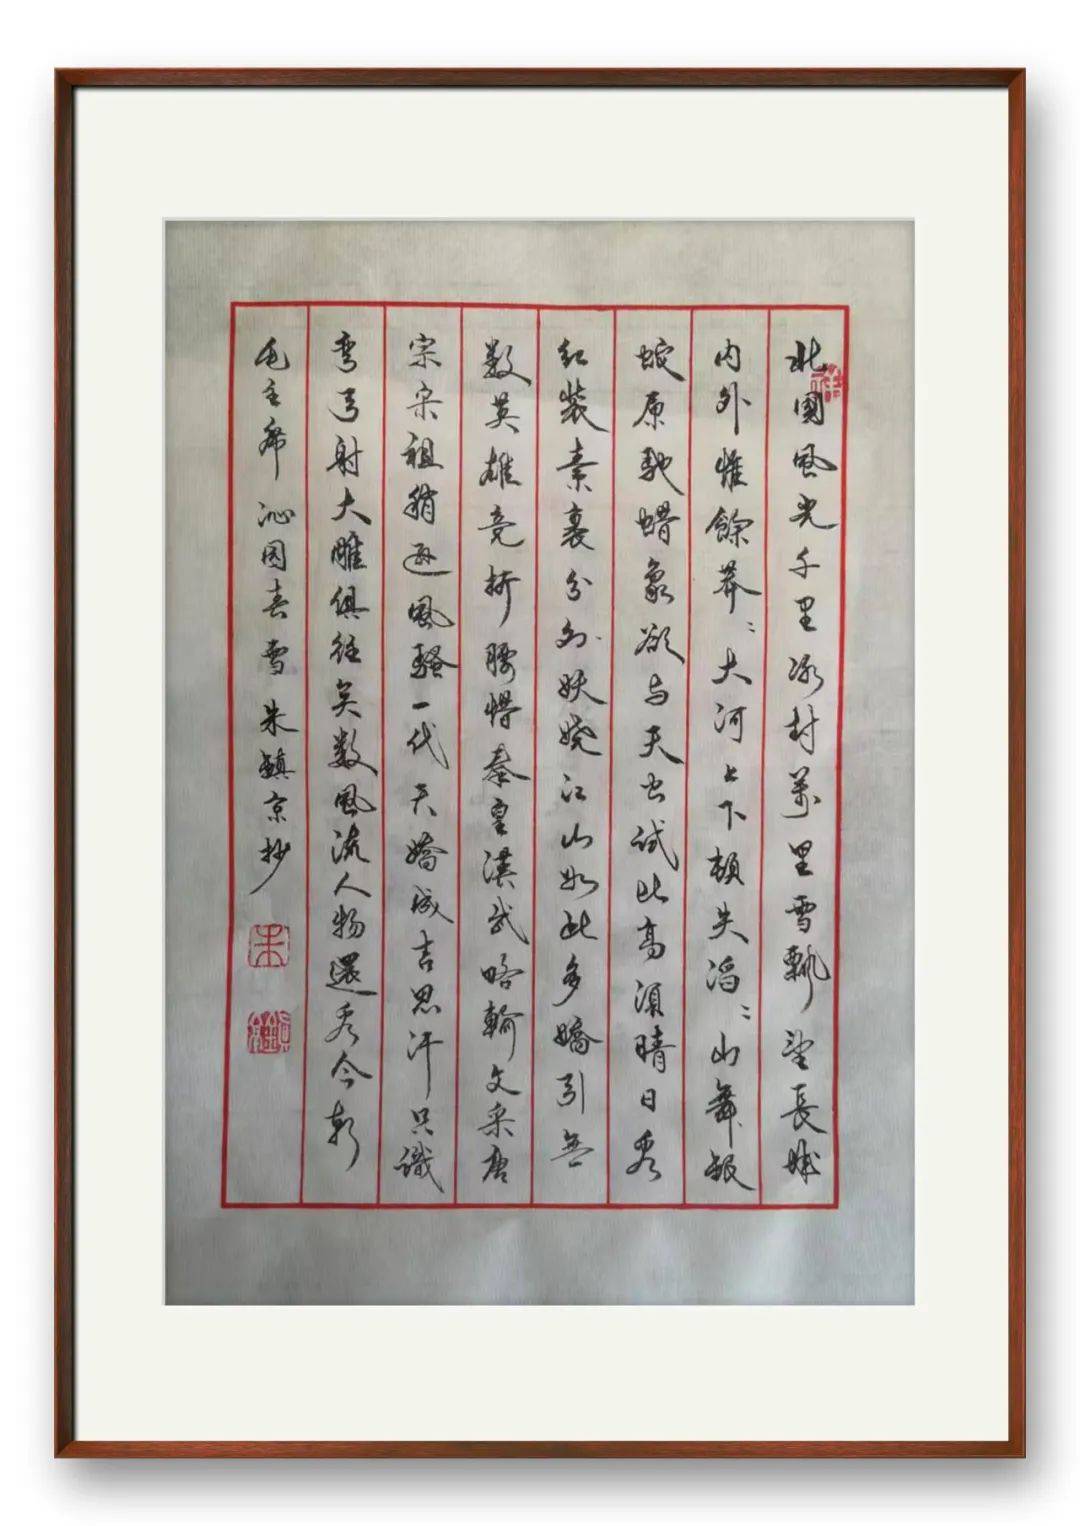 北國風光千里冰封萬里雪飄望長城
内外惟餘莽〻大河上下頓失滔〻山舞銀
蛇原馳蜡象欲与天公試比高須晴日看
红装素裹分外妖娆江山如此多嬌引無
数英雄竞折腰惜秦皇漢武略輸文采唐
宗宋祖稍逊風騷一代天嬌成吉思汗只識
弯弓射大雕俱往矣数風流人物還看今朝
毛主席 沁园春雪 朱鎮京抄
朱